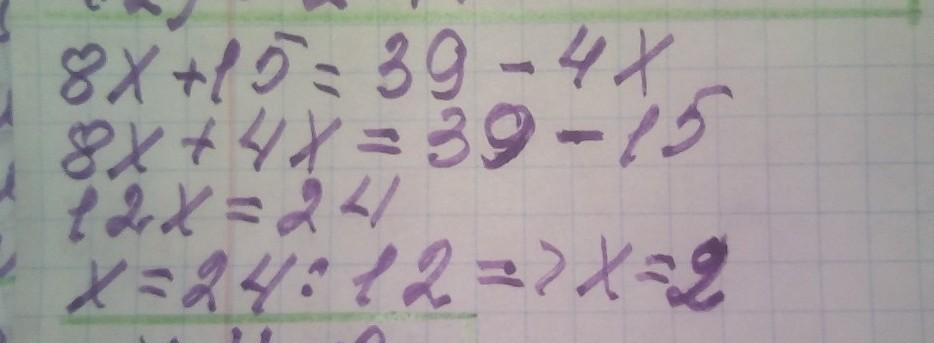 8x+15=39-4x
8x+4x=39-15
12x=24
x=24:12=>x=2